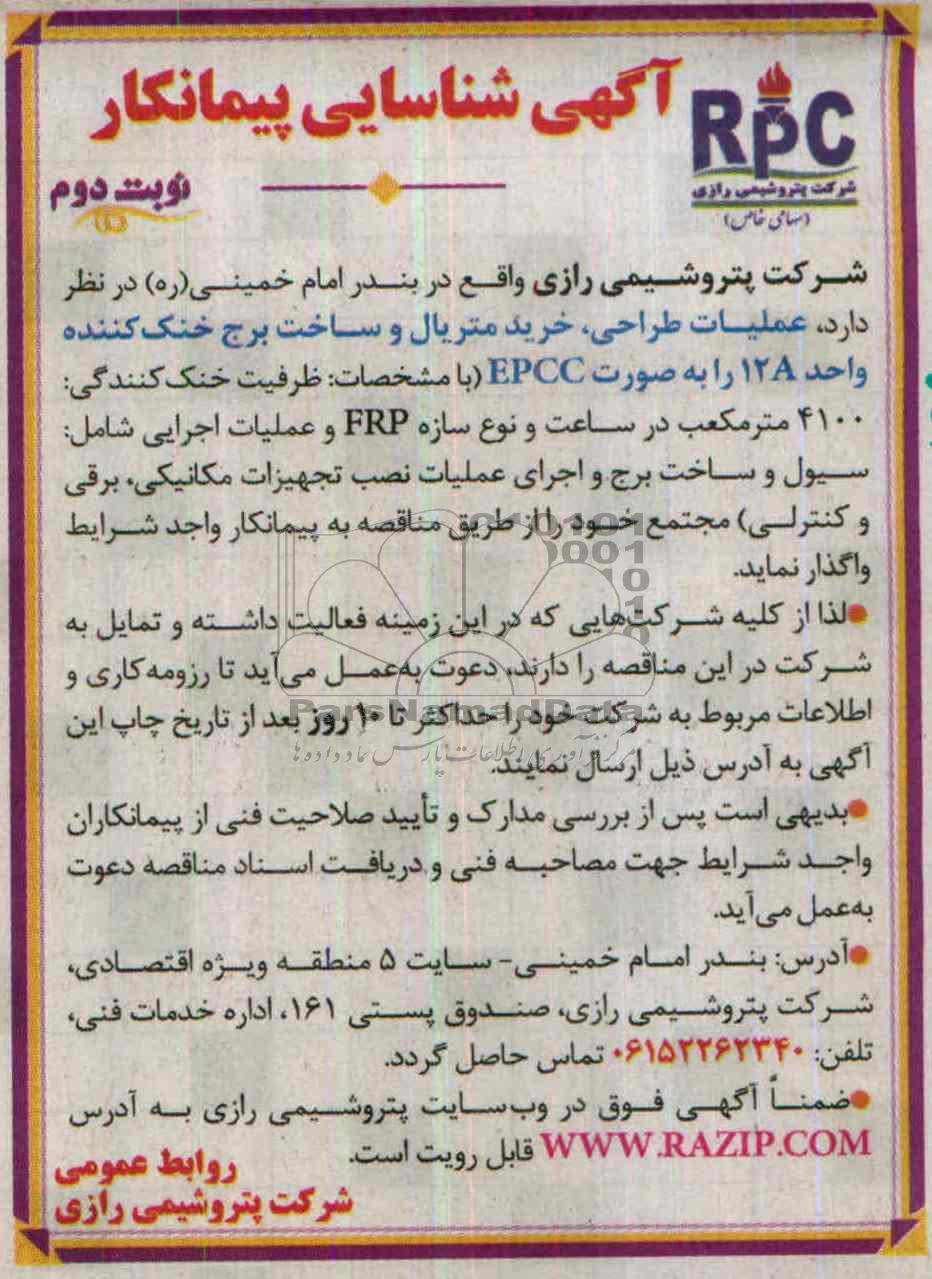 آگهی شناسایی پیمانکار
RPC
شرکت پتروشیمی رازی
(سهامی خاص)
نوبت دوم
شرکت پتروشیمی رازی واقع در بندر امام خمینی(ره) در نظر
دارد، عملیات طراحی، خرید متریال و ساخت برج خنک‌کننده
واحد ۱۲A را به صورت EPCC (با مشخصات: ظرفیت خنک‌کنندگی:
۴۱۰۰ مترمکعب در ساعت و نوع سازه FRP و عملیات اجرایی شامل:
سیول و ساخت برج و اجرای عملیات نصب تجهیزات مکانیکی، برقی
و کنترلی) مجتمع خود را از طریق مناقصه به پیمانکار واجد شرایط
واگذار نماید.
●لذا از کلیه شرکت‌هایی که در این زمینه فعالیت داشته و تمایل به
شرکت در این مناقصه را دارند، دعوت به‌عمل می‌آید تا رزومه‌کاری و
اطلاعات مربوط به شرکت خود را حداکثر تا ۱۰ روز بعد از تاریخ چاپ این
آگهی به آدرس ذیل ارسال نمایند.
●بدیهی است پس از بررسی مدارک و تأیید صلاحیت فنی از پیمانکاران
واجد شرایط جهت مصاحبه فنی و دریافت اسناد مناقصه دعوت
به‌عمل می‌آید.
●آدرس: بندر امام خمینی- سایت ۵ منطقه ویژه اقتصادی،
شرکت پتروشیمی رازی، صندوق پستی ۱۶۱، اداره خدمات فنی،
تلفن: ۰۶۱۵۲۲۶۲۳۴۰ تماس حاصل گردد.
●ضمناً آگهی فوق در وب‌سایت پتروشیمی رازی به آدرس
WWW.RAZIP.COM قابل رویت است.
روابط عمومی
شرکت پتروشیمی رازی
ParsNamadData